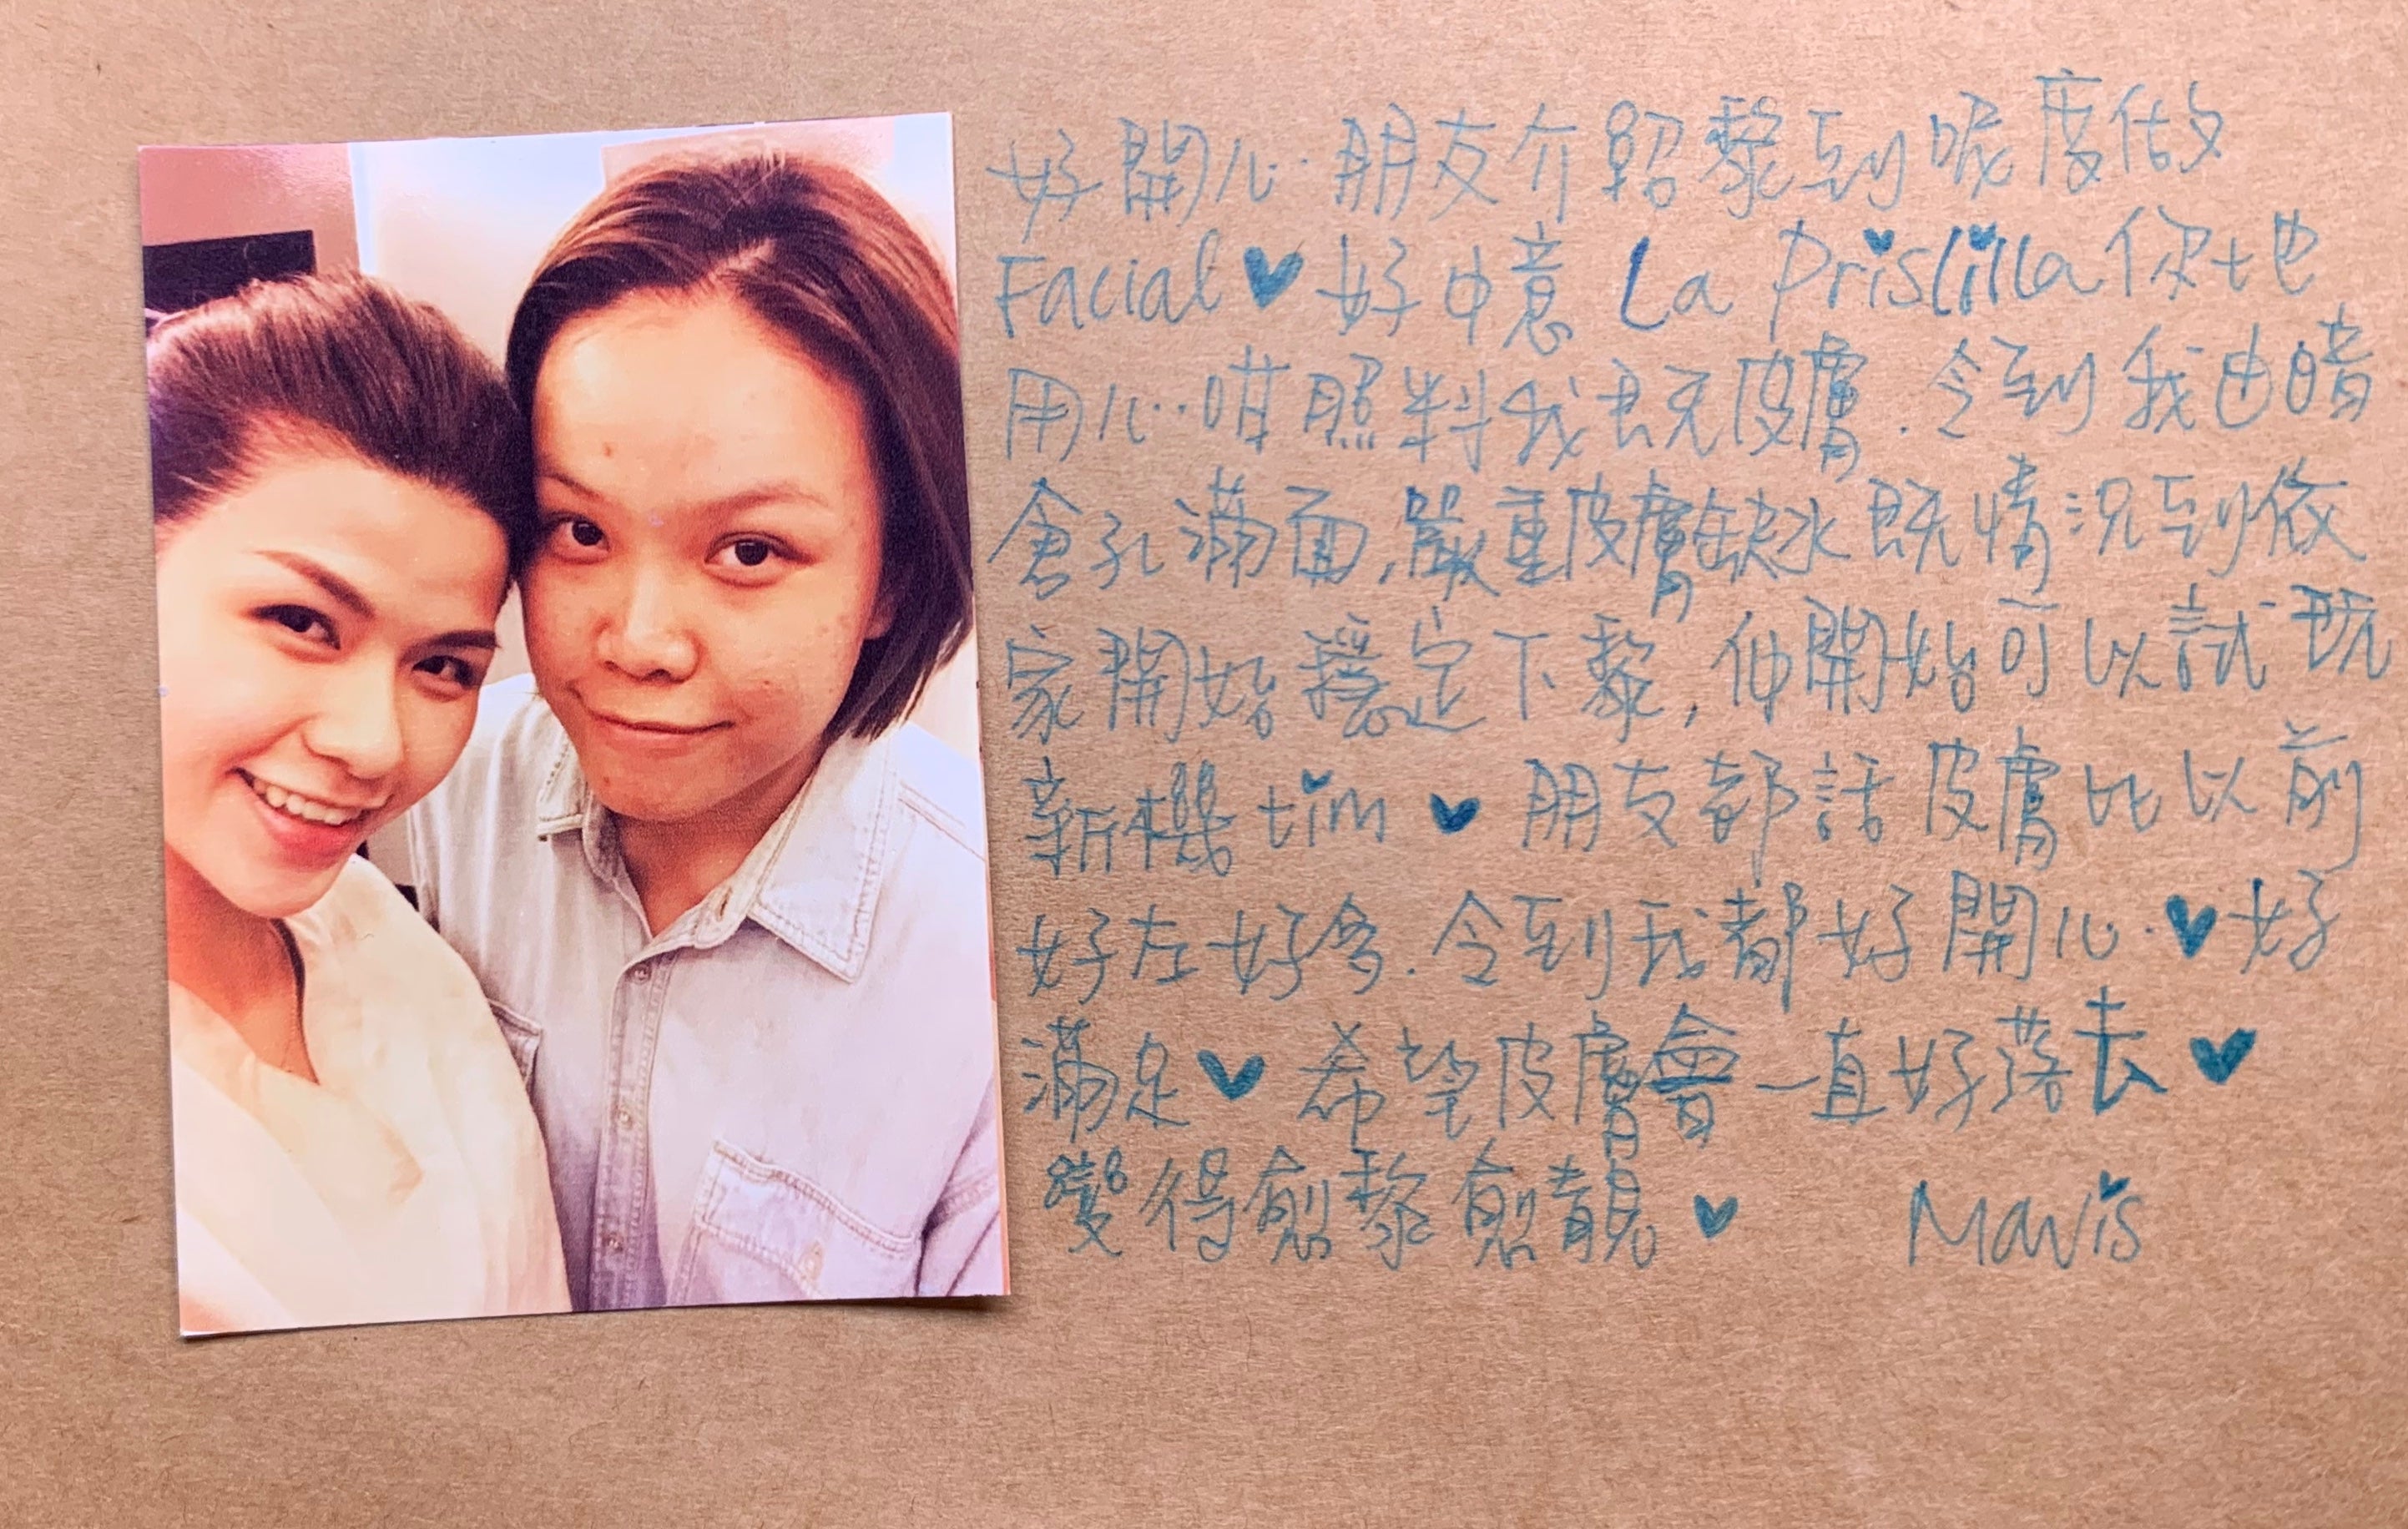 好開心朋友介紹黎到呢度做
Facial♥好中意 La Prislilla 你地
用心咁照料我既皮膚.令到我由暗
倉孔滿面,嚴重皮膚缺水既情況到依
家開始穩定下黎,仲開始可以試玩
新機tim ♥ 朋友都話皮膚比以前
好左好多.令到我都好開心♥好
滿足♥希望皮膚會一直好落去♥
變得愈黎愈靚♥ Mavis